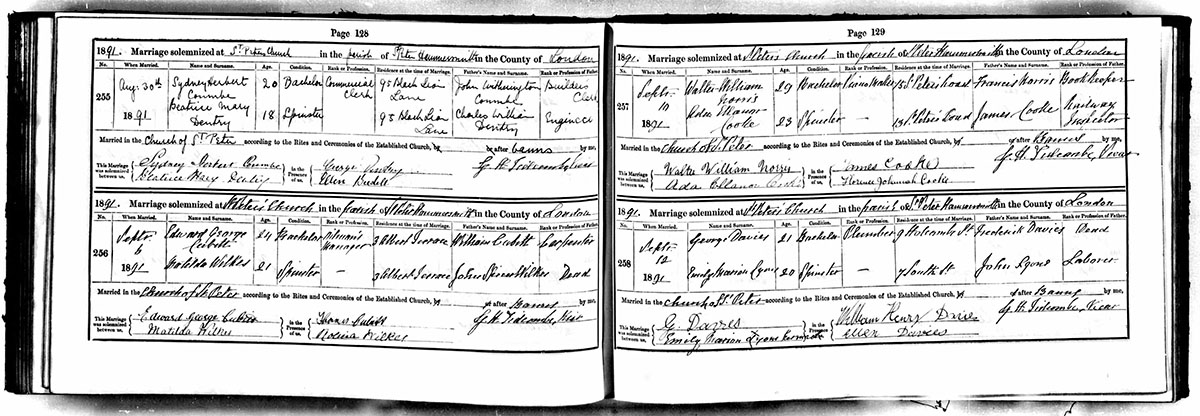 Page 128
1891. Marriage solemnized at St Peters Church in the parish of St Peter Hammersmith in the County of London
No. When Married. Name and Surname. Age. Condition. Rank or Profession. Residence at the time of Marriage. Father's Name and Surname. Rank or Profession of Father.
255 Aug. 30th 1891 Sydney Herbert Coumbe 20 Bachelor Commercial Clerk 95 Black Lion Lane John Coumbe Builders Clerk
Beatrice Mary Dentry 18 Spinster 95 Black Lion Lane Charles William Dentry Engineer
Married in the Church of St Peter according to the Rites and Ceremonies of the Established Church, by or after banns by me,
This Marriage was solemnized between us, Sydney Herbert Coumbe Beatrice Mary Dentry in the Presence of us, George Dentry Ellen G. H. Tidcombe Vicar
1891. Marriage solemnized at St Peters Church in the parish of St Peter Hammersmith in the County of London
No. When Married. Name and Surname. Age. Condition. Rank or Profession. Residence at the time of Marriage. Father's Name and Surname. Rank or Profession of Father.
256 Septr 1891 Edward George Cubitt 24 Bachelor Manager 3 Albert Terrace William Cubitt Carpenter
Matilda Wilkes 21 Spinster — 3 Albert Terrace John Wilkes Dead
Married in the Church of St Peter according to the Rites and Ceremonies of the Established Church, by or after Banns by me,
This Marriage was solemnized between us, Edward George Cubitt Matilda Wilkes in the Presence of us, Thomas Cubitt Wilkes G. H. Tidcombe, Vicar
Page 129
1891. Marriage solemnized at St Peters Church in the parish of St Peter Hammersmith in the County of London
No. When Married. Name and Surname. Age. Condition. Rank or Profession. Residence at the time of Marriage. Father's Name and Surname. Rank or Profession of Father.
257 Septr 10 1891 Walter William Norris 29 Bachelor St Peters Road Francis Norris Book Keeper
Ada Ellanor Cooke 23 Spinster — St Peters Road James Cooke Railway Inspector
Married in the Church of St Peter according to the Rites and Ceremonies of the Established Church, by or after Banns by me,
This Marriage was solemnized between us, Walter William Norris Ada Ellanor Cooke in the Presence of us, James Cooke Florence Johannah Cooke G. H. Tidcombe Vicar
1891. Marriage solemnized at St Peters Church in the parish of St Peter Hammersmith in the County of London
No. When Married. Name and Surname. Age. Condition. Rank or Profession. Residence at the time of Marriage. Father's Name and Surname. Rank or Profession of Father.
258 Septr 12 1891 George Davies 21 Bachelor Plumber 9 Holcombe St Frederick Davies Dead
Emily Marion Lyons 20 Spinster — 7 South St John Lyons Laborer
Married in the Church of St Peter according to the Rites and Ceremonies of the Established Church, by or after Banns by me,
This Marriage was solemnized between us, G. Davies Emily Marion Lyons in the Presence of us, William Henry Davies Ellen Davies G. H. Tidcombe, Vicar